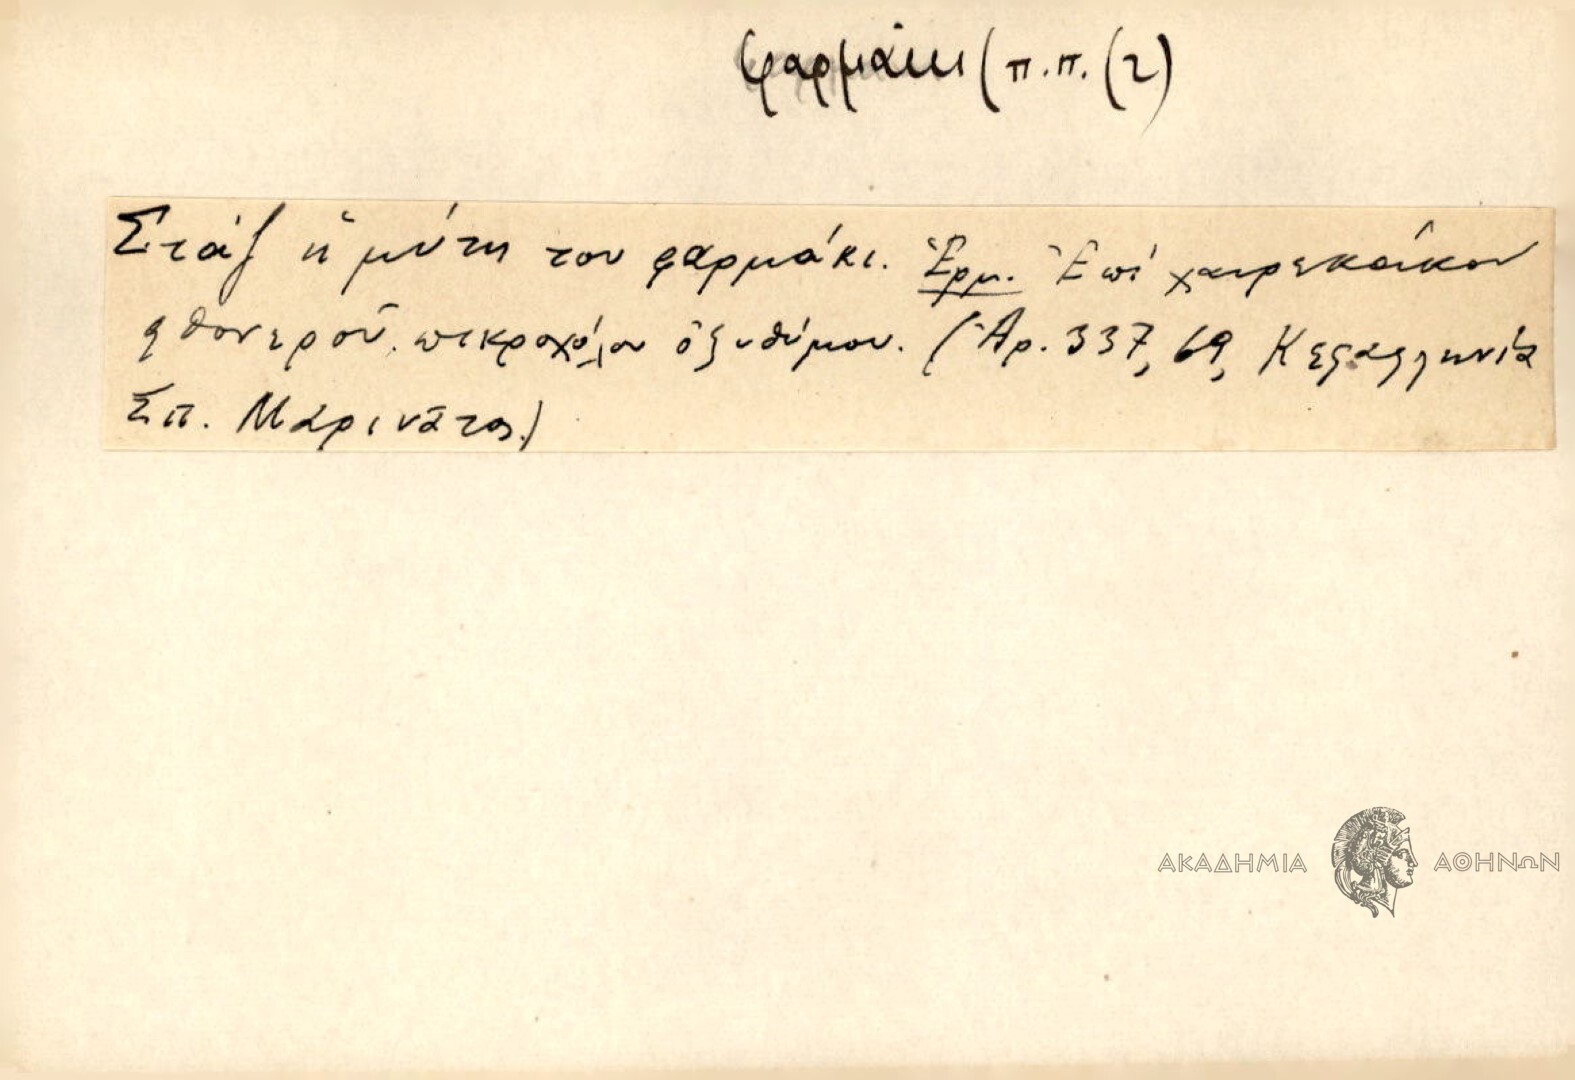 φαρμάκι (π.π. (2)
Στάζ' ἡ μύτη του φαρμάκι. Ἑρμ. Ἐπί χαιρεκάκου
φθονεροῦ, πικροχόλου ὀξυθύμου. (Ἀρ. 337, 69, Κεφαλληνία
Σπ. Μαρινᾶτος.)
ΑΚΑΔΗΜΙΑ ΑΘΗΝΩΝ